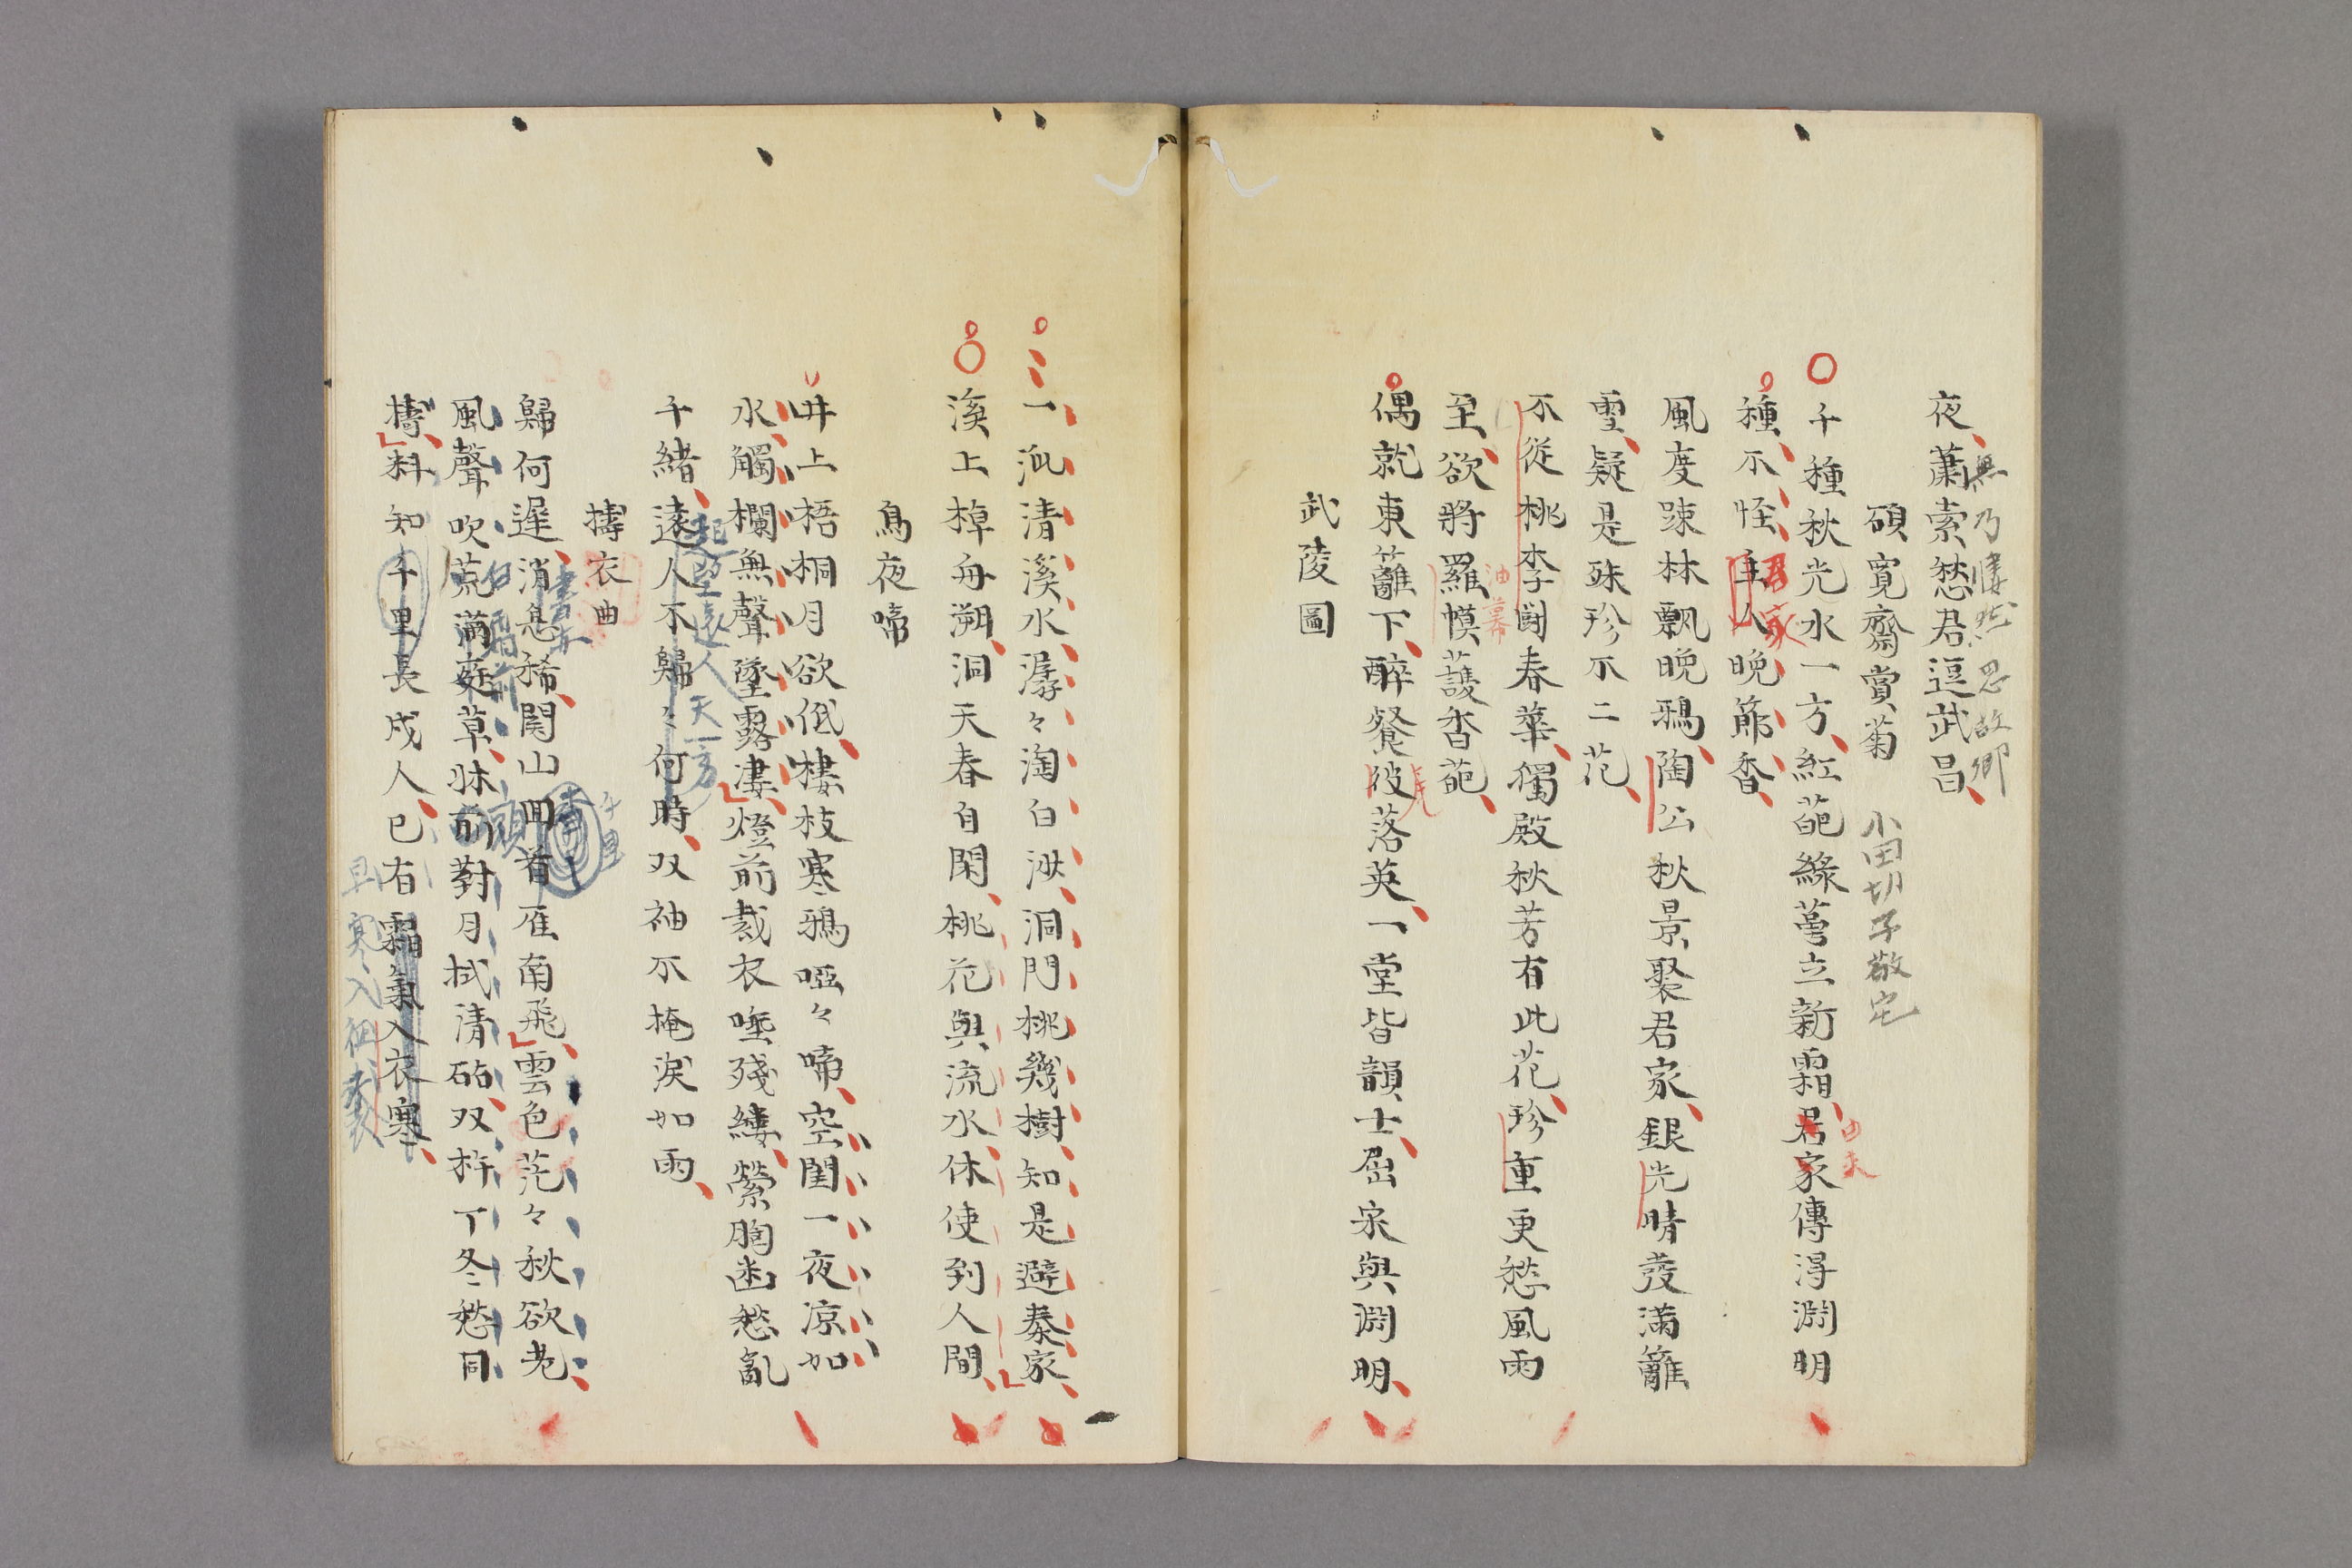 夜蕭索愁君逗武昌
無乃悽然思故鄉
碩寬齋賞菊 小田切子敬宅
千種秋光水一方紅葩綠萼立新霜君家傳得淵明
由夫
種不怪主人晚節香
君家
風度踈林飄晚鴉陶公秋景聚君家銀光晴發滿籬
雪疑是殊珍不二花
不從桃李鬪春華獨殿秋芳有此花珍重更愁風雨
至欲將羅幙護香葩
油幕
偶就東籬下醉餐彼落英一堂皆韻士屈宋與淵明
武陵圖
一派清溪水潺々淘白沙洞門桃幾樹知是避秦家
溪上棹舟溯洞天春自閑桃花與流水休使到人間
烏夜啼
井上梧桐月欲低棲枝寒鴉啞々啼空閨一夜凉如
水觸欄無聲墜露凄燈前裁衣唾殘縷縈胸幽愁亂
起望遠人天一方
千緒遠人不歸々何時双袖不掩淚如雨
擣衣曲
千里
歸何遲消息稀関山回首雁南飛雲色茫々秋欲老
書
風聲吹荒滿庭草牀前對月拭清砧双杵丁冬愁同
擣料知千里長戍人已有霜氣入衣寒
早寒入征衣